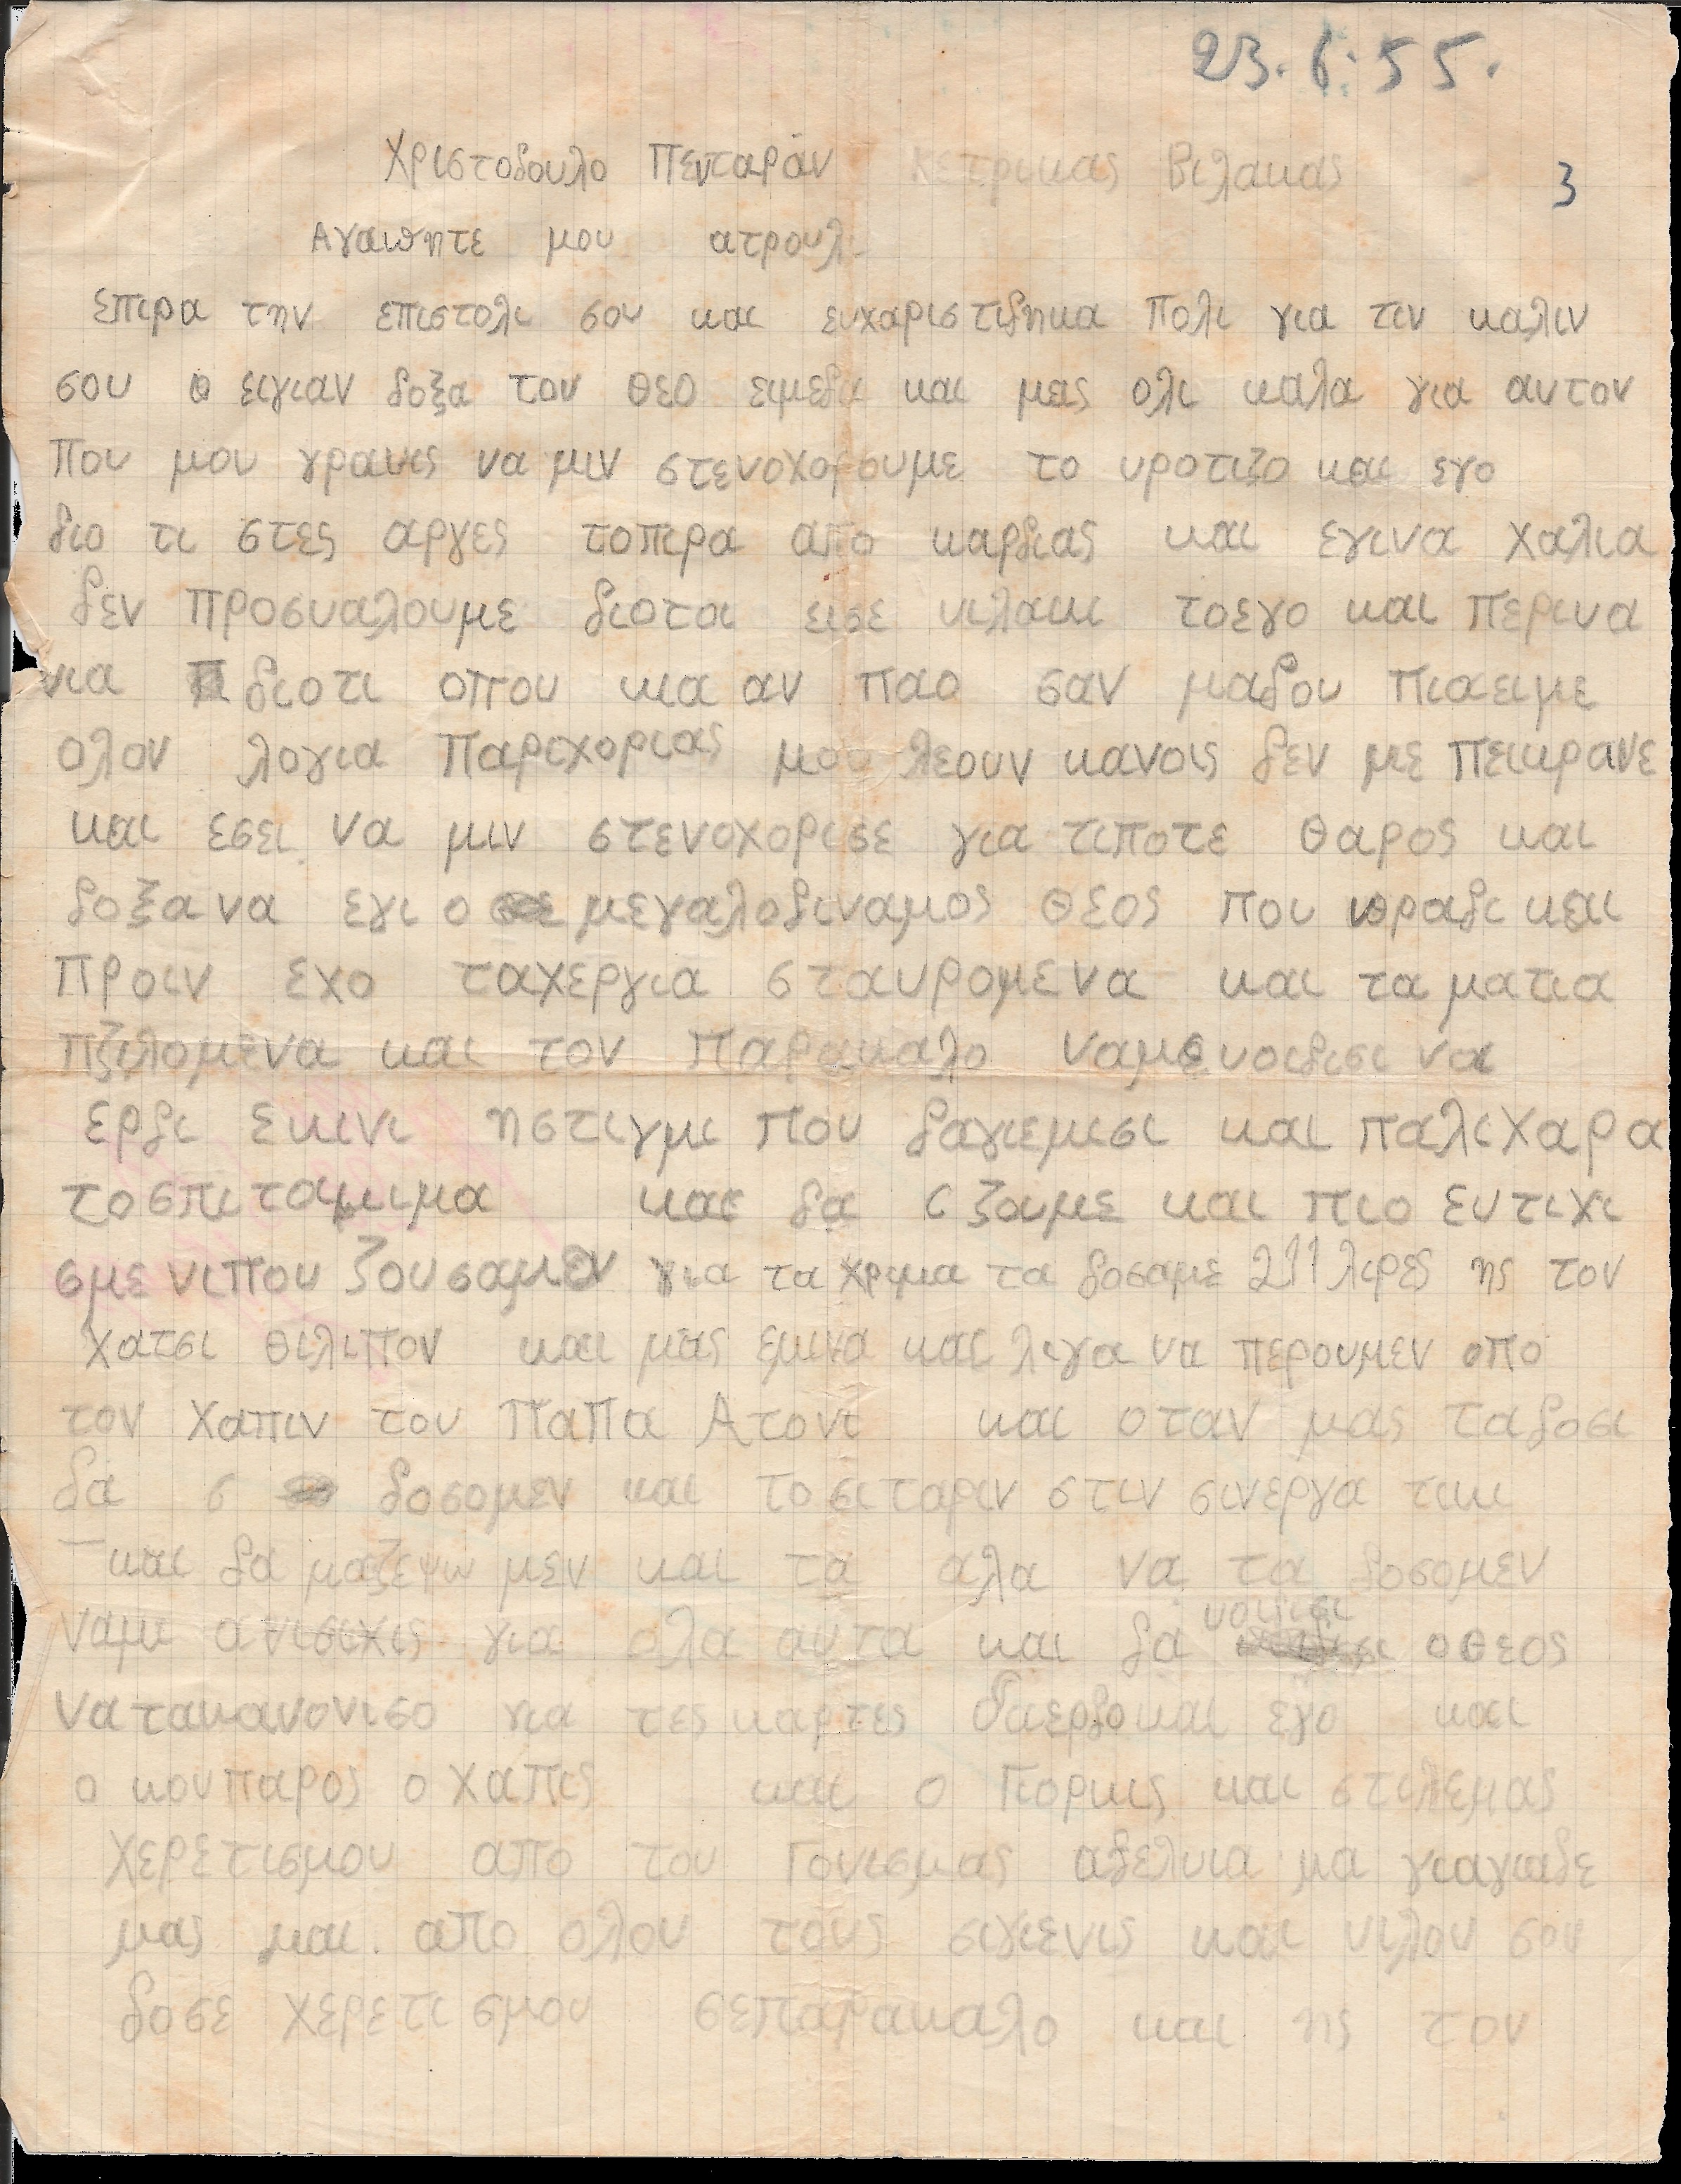 23.6:55.
Χριστοδουλο Πενταράν Κετρικας Βιλακας 3
Αγαπητε μου ατρουλι
επιρα την επιστολι σου και ευχαριστιδηκα Πολι για τιν καλιν
σου ειγιαν δοξα τον θεο ειμεδα και μεις ολι καλα για αυτον
που μου γραυις να μιν στενοχορουμε το υροτιζο και εγο
διο τι στες αργες τοπιρα απο καρδιας και εγινα χαλια
δεν προσυαλουμε διοτοι εισε υιλακι τοεγο και περινα
νια διοτι οπου κια αν παο σαν μαδου πιαειμε
ολον λογια Παριχοριας μου λεουν κανοις δεν με πεικρανε
και εσει να μιν στενοχορισε για τιποτε θαρος και
δοξα να εχι ο μεγαλοδιναμος θεος που βραδι και
Πριν εχο ταχεργια σταυρομενα και τα ματια
Πζιλομενα και τον Παρακαλο ναμε υοιδισι να
ερδι εκινι ηστιγμι που δαγιεμισι και παλι χαρα
τοσπιτομιμα και δα ζουμε και πιο ευτιχι
σμε νιπου ζουσαμεν για τα χριμα τα δοσαμε 211 λιρες ης τον
χατσι θιλιπον και μας εμινα και λιγα να περουμεν οπο
τον Χαπιν του Παπα Ατονι και οταν μας ταδοσι
δα σ δοσομεν και το σιταριν στιν σινεργα τικι
και δα μαζεψω μεν και τα αλα να τα δοσομεν
ναμι ανισιχις για ολα αυτα και δα υοιδισι οθεος
να τακανονισο για τες καρτες δαερδοκαι εγο και
ο κουπαρος ο Χαπις και ο Γιορκις και στιλεμας
Χερετισμου απο του Γονισμας αδελυια μα γιαγιαδε
μας και απο ολου τους σιγιενις και υιλου σου
δοσε χερετι σμου σεπαρακαλο και ης τον